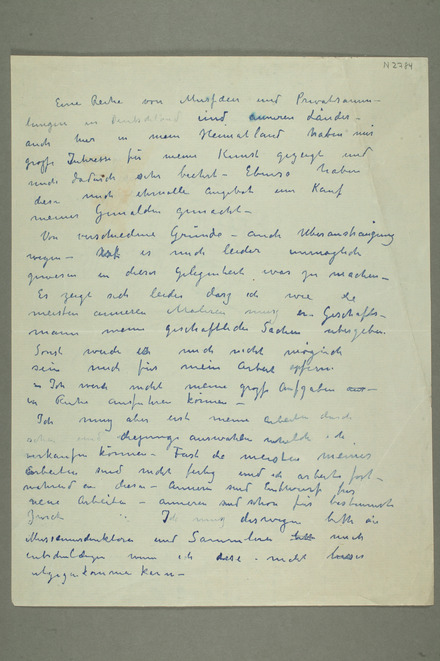 N 2784
Eine Reihe von Museen und Privatsamm-
lungen in Deutschland und anderen Länder -
auch hier in mein Heimatland haben mir
große Interesse für meine Kunst gezeigt und
mich dadurch sehr beehrt - Ebenso haben
diese mich ehrvolle Angebot zum Kauf
meines Gemälden gemacht -
Von verschiedene Gründe - auch Überanstrengung
wegen - es mich leider unmöglich
gewesen in dieser Gelegenheit was zu machen -
Es zeigt sich leider dasz ich wie die
meisten anderen Malern muss Geschäfts-
mann meine geschäftliche Sachen übergeben
Sonst werde ich mich nicht möglich
sein mich für mein Arbeit opfern
Ich werde nicht meine große Aufgaben
in Ruhe ausführen können -
Ich muss aber erst meine Arbeiten
auswahlen
verkaufen können - Fast die meisten meines
Arbeiten sind nicht fertig und ich arbeite fort-
während an diese - Andere sind Entwürfe für
neue Arbeiten - anderen sind schon für bestimmte
Zweck Ich muss deswegen bitte die
Museumsdirektoren und Sammlerer mich
entschuldigen wenn ich diese nicht